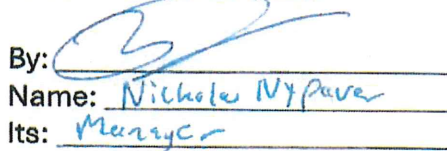 By:
Name: Nicholas Nypaver
Its: Manager